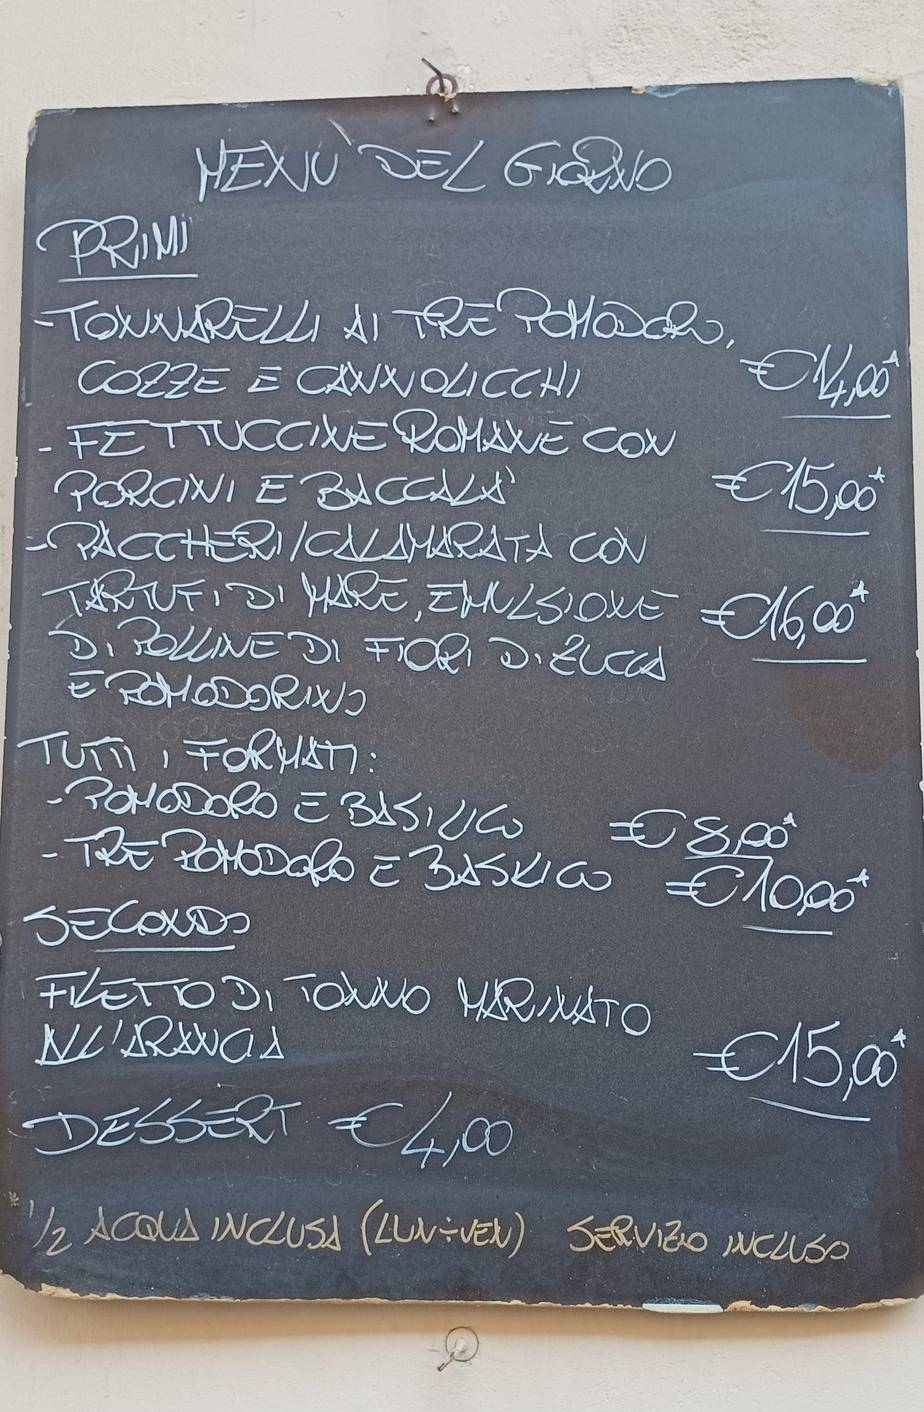 MENU' DEL GIORNO
PRIMI
- TONNARELLI AI TRE POMODORO,
COZZE E CANNOLICCHI € 14,00*
- FETTUCCINE ROMANE CON
PORCINI E BACCALA' € 15,00*
- PACCHERI/CALAMARATA CON
TARTUFI DI MARE, EMULSIONE € 16,00*
DI POLLINE DI FIORI DI ZUCCA
E POMODORINO
TUTTI I FORMATI:
- POMODORO E BASILICO € 8,00*
- TRE POMODORO E BASILICO € 10,00*
SECONDO
FILETTO DI TONNO MARINATO
ALL'ARANCIA € 15,00*
DESSERT € 4,00
* 1/2 ACQUA INCLUSA (LUN÷VEN) SERVIZIO INCLUSO